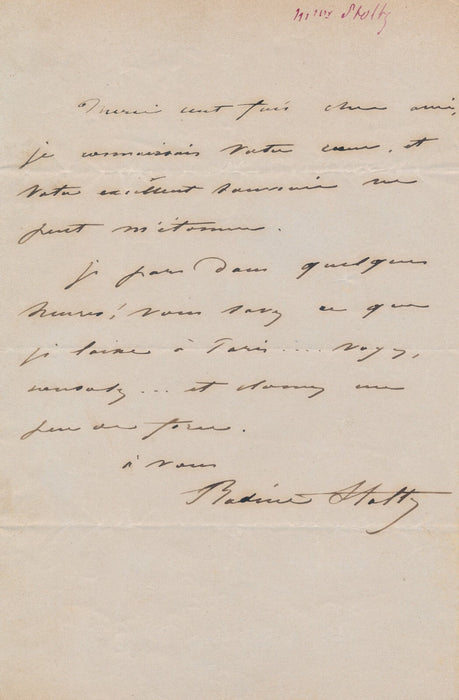 Mme Stoltz
Merci cent fois cher ami,
je connaissais votre cœur, et
votre excellent souvenir ne
peut m'étonner.
je pars dans quelques
heures! vous savez ce que
je laisse à Paris .... voyez,
consolez ... et donnez un
peu de force.
à vous
Stoltz